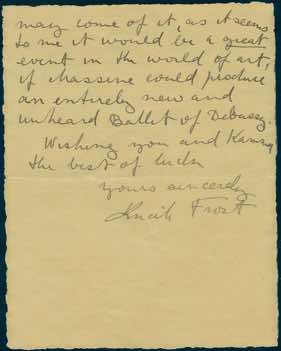 may come of it, as it seems
to me it would be a great
event in the world of art,
if Massine could produce
an entirely new and
unheard Ballet of Debussy.
Wishing you and
the best of luck
Yours sincerely
Frost